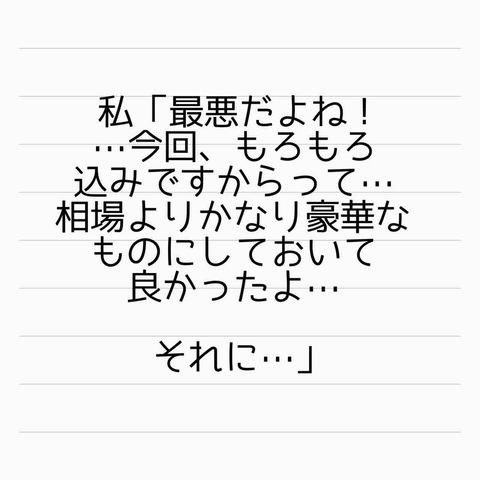 私「最悪だよね！
…今回、もろもろ
込みですからって…
相場よりかなり豪華な
ものにしておいて
良かったよ…
それに…」